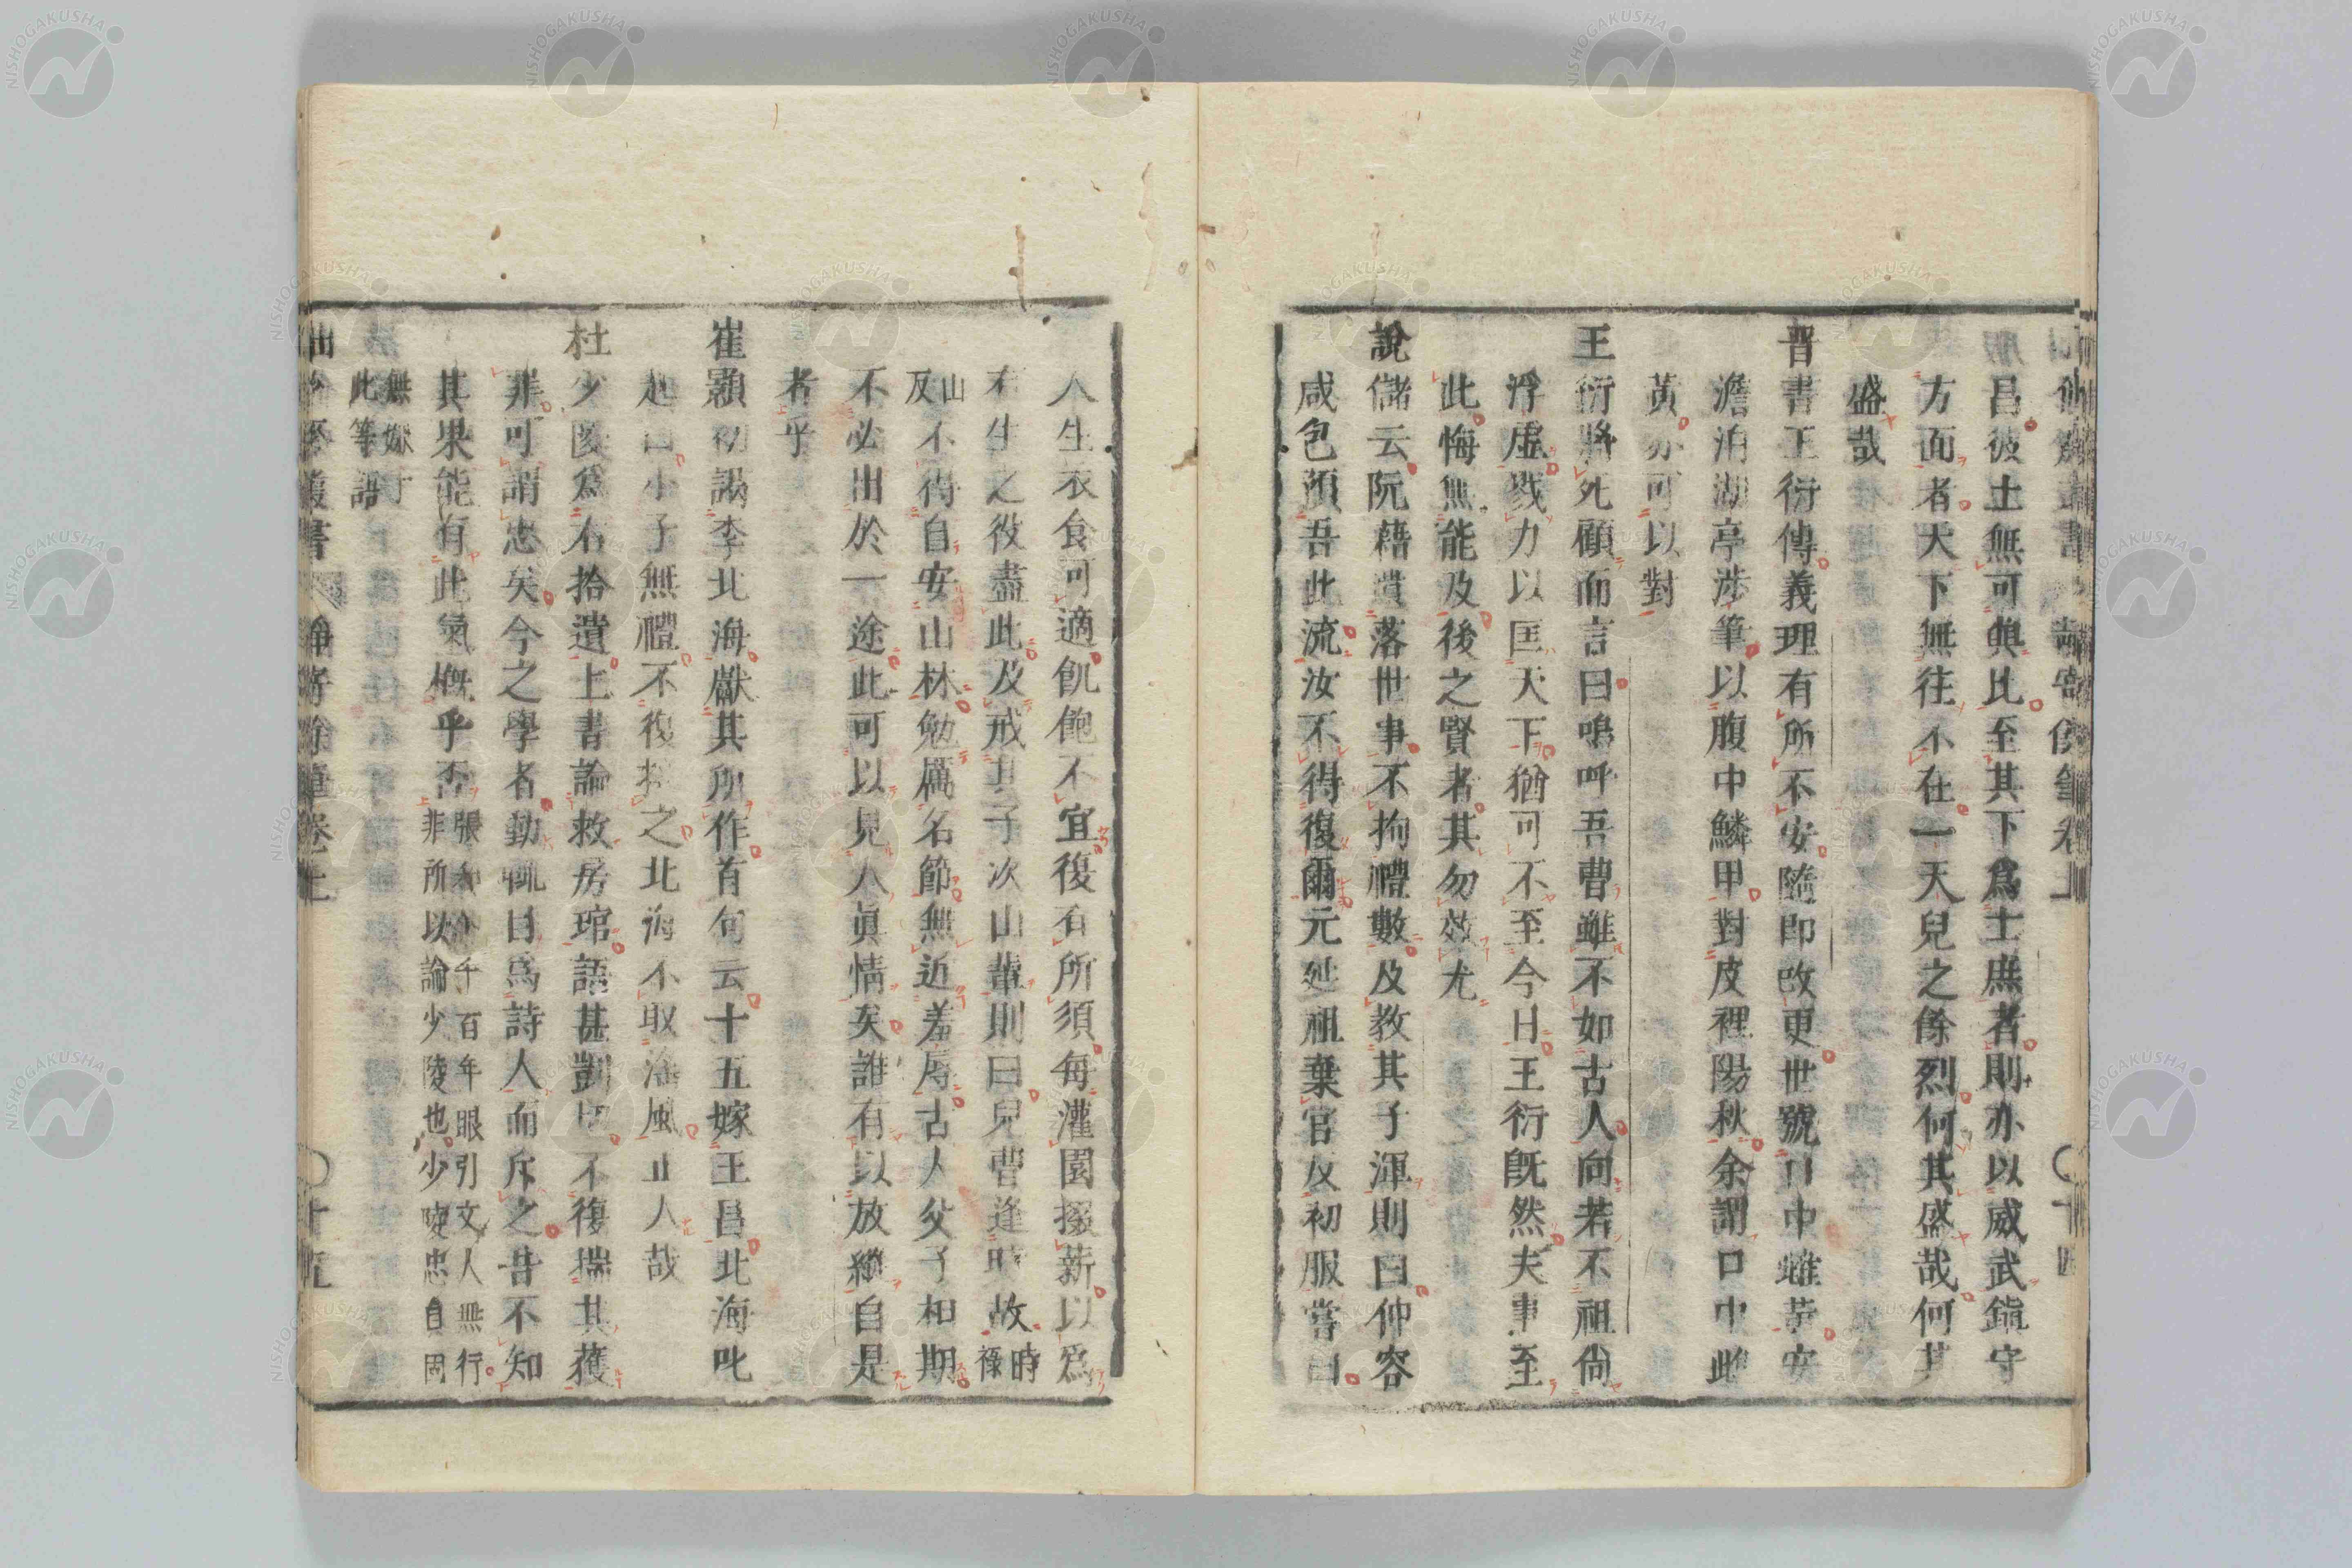 昌彼土無可與比至其下爲士庶者則亦以威武鎮守
方面者天下無往不在一天兒之餘烈何其盛哉何其
盛哉
晋書王衍傳義理有所不安隨即改更世號口中雌黄安
澹泊湖亭渉筆以腹中鱗甲對皮裡陽秋余謂口中雌
黄亦可以對
王衍將死顧而言曰嗚呼吾曹雖不如古人向若不祖尚
浮虚戮力以匡天下猶可不至今日王衍既然夫事至
此悔無能及後之賢者其勿效尤
說儲云阮藉遺落世事不拘禮數及教其子渾則曰仲容
咸包預吾此流汝不得復爾元延祖棄官反初服嘗曰
人生衣食可適飢飽不宜復有所須每灌園掇薪以爲
有生之役盡此及戒其子次山輩則曰兒曹逢時故時祿
山反不得自安山林勉厲名節無近羞辱古人父子相期
不必出於一途此可以見人眞情矣誰有以放縱自是
者乎
崔顥初謁李北海獻其所作首句云十五嫁王昌北海叱
起曰小子無禮不復接之北海不取淫風正人哉
杜少陵爲右拾遺上書論救房琯語甚剴切不復揣其獲
罪可謂忠矣今之學者動輒目爲詩人而斥之吾不知
其果能有此氣慨乎否
張和仲千百年眼引文人無行
非所以論少陵也少陵忠自固
無嫁于
此等語
静寄餘筆卷上
〇十五